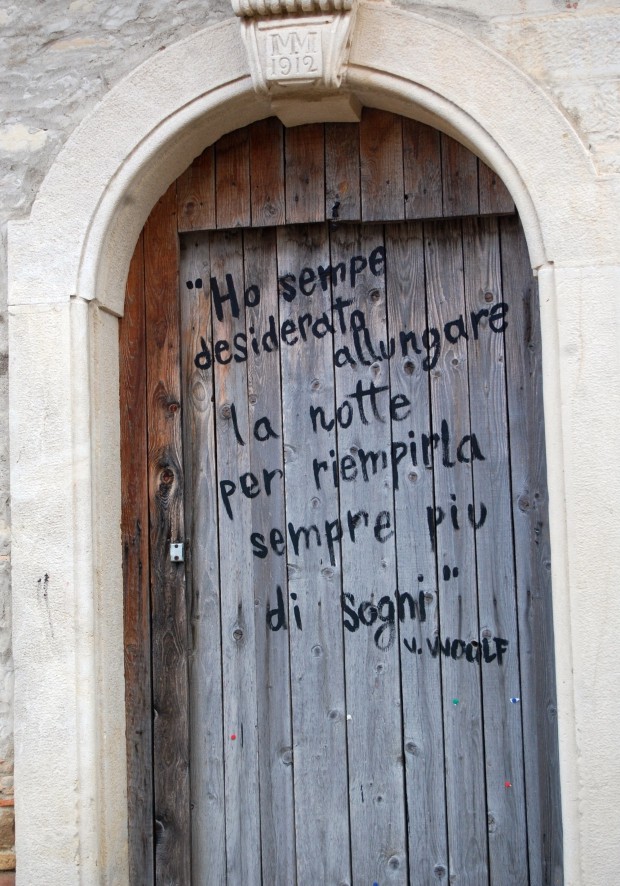 MM
1912
"Ho sempe
desiderato allungare
la notte
per riempirla
sempre piu
di sogni"
V. WOOLF